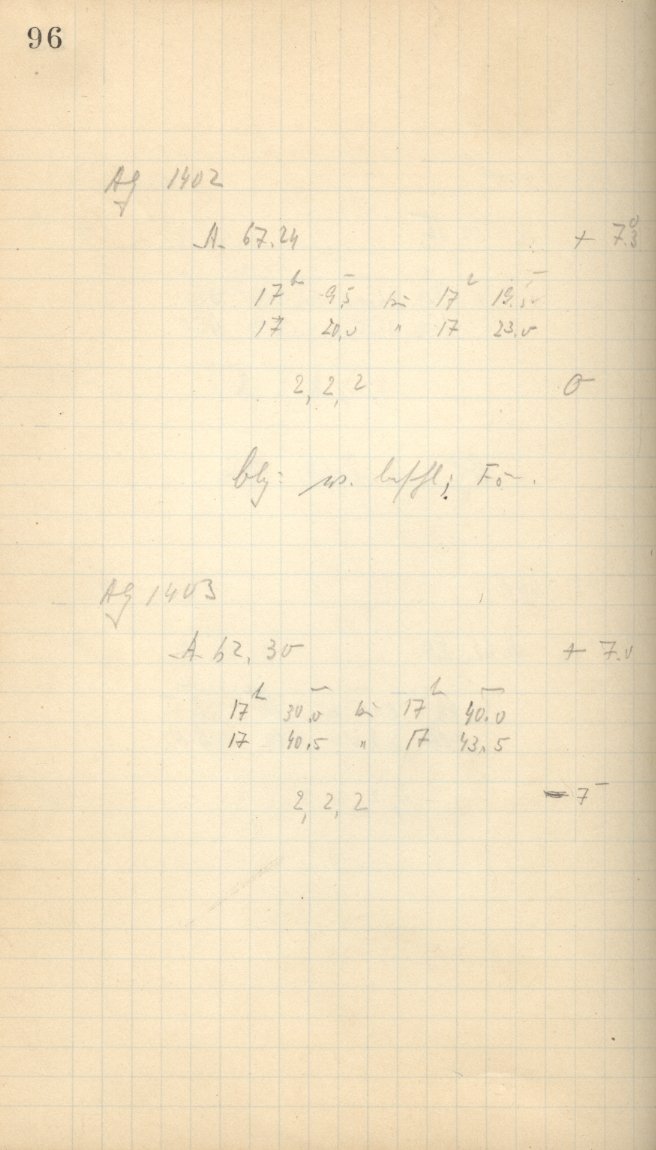 96
AG 1402
A. 67.24 + 7.3°
17ʰ 9.5ᵐ bis 17ʰ 19.5ᵐ
17 20.0 " 17 23.0
2, 2, 2 0
w.
AG 1403
A 62, 30 + 7.0
17ʰ 30.0ᵐ bis 17ʰ 40.0ᵐ
17 40.5 " 17 43.5
2, 2, 2 – 7ᵐ